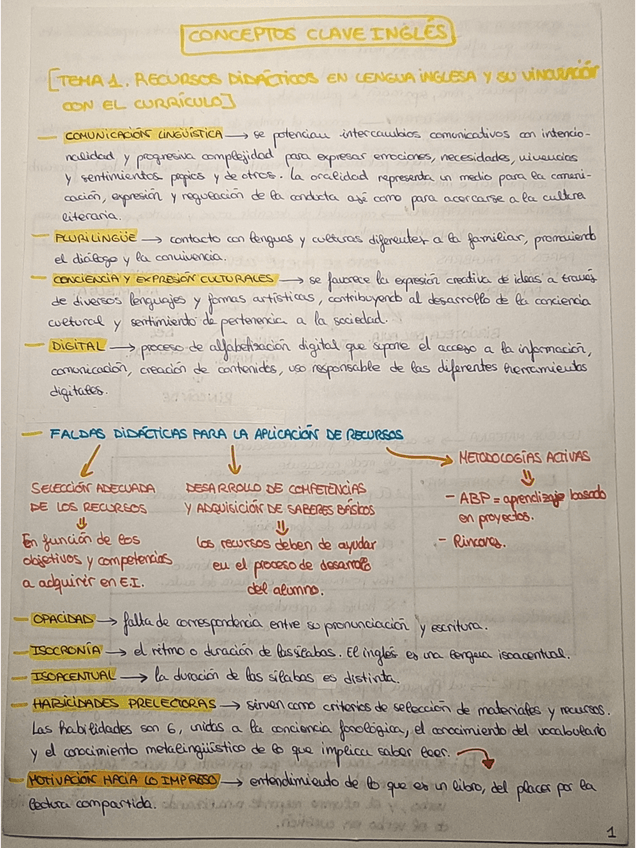 CONCEPTOS CLAVE INGLÉS
[TEMA 1. RECURSOS DIDÁCTICOS EN LENGUA INGLESA Y SU VINCULACIÓN
CON EL CURRÍCULO]
— COMUNICACIÓN LINGÜÍSTICA → se potencian intercambios comunicativos con intencio-
nalidad y progresiva complejidad para expresar emociones, necesidades, vivencias
y sentimientos propios y de otros. La oralidad representa un medio para la comuni-
cación, expresión y regulación de la conducta así como para acercarse a la cultura
literaria.
— PLURILINGÜE → contacto con lenguas y culturas diferentes a la familiar, promoviendo
el diálogo y la convivencia.
— CONCIENCIA Y EXPRESIÓN CULTURALES → se favorece la expresión creativa de ideas a través
de diversos lenguajes y formas artísticas, contribuyendo al desarrollo de la conciencia
cultural y sentimiento de pertenencia a la sociedad.
— DIGITAL → proceso de alfabetización digital que supone el acceso a la información,
comunicación, creación de contenidos, uso responsable de las diferentes herramientas
digitales.
— FALDAS DIDÁCTICAS PARA LA APLICACIÓN DE RECURSOS
SELECCIÓN ADECUADA
DE LOS RECURSOS
⇓
En función de los
objetivos y competencias
a adquirir en E.I.
DESARROLLO DE COMPETENCIAS
Y ADQUISICIÓN DE SABERES BÁSICOS
⇓
Los recursos deben de ayudar
en el proceso de desarrollo
del alumno.
METODOLOGÍAS ACTIVAS
⇓
- ABP = aprendizaje basado
en proyectos.
- Rincones.
— OPACIDAD → falta de correspondencia entre su pronunciación y escritura.
— ISOCRONÍA → el ritmo o duración de las sílabas. El inglés es una lengua isoacentual.
— ISOACENTUAL → la duración de las sílabas es distinta.
— HABILIDADES PRELECTORAS → sirven como criterios de selección de materiales y recursos.
Las habilidades son 6, unidas a la conciencia fonológica, el conocimiento del vocabulario
y el conocimiento metalingüístico de lo que implica saber leer.
— MOTIVACIÓN HACIA LO IMPRESO → entendimiento de lo que es un libro, del placer por la
lectura compartida.
1